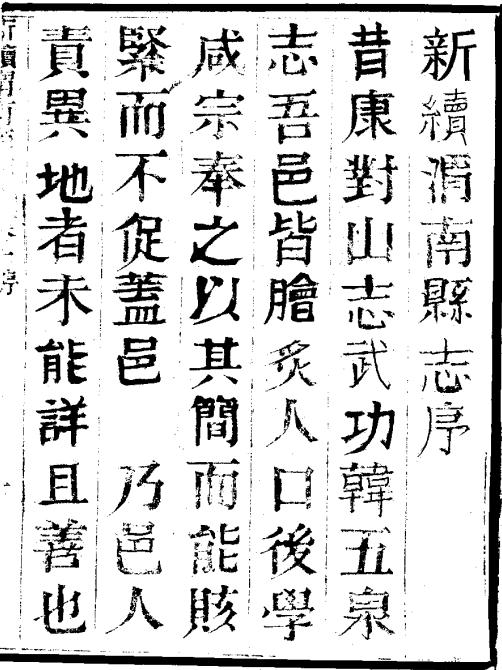 新續渭南縣志序
昔康對山志武功韓五泉
志吾邑皆膾炙人口後學
咸宗奉之以其簡而能賅
緊而不促蓋邑　乃邑人
責異地者未能詳且善也